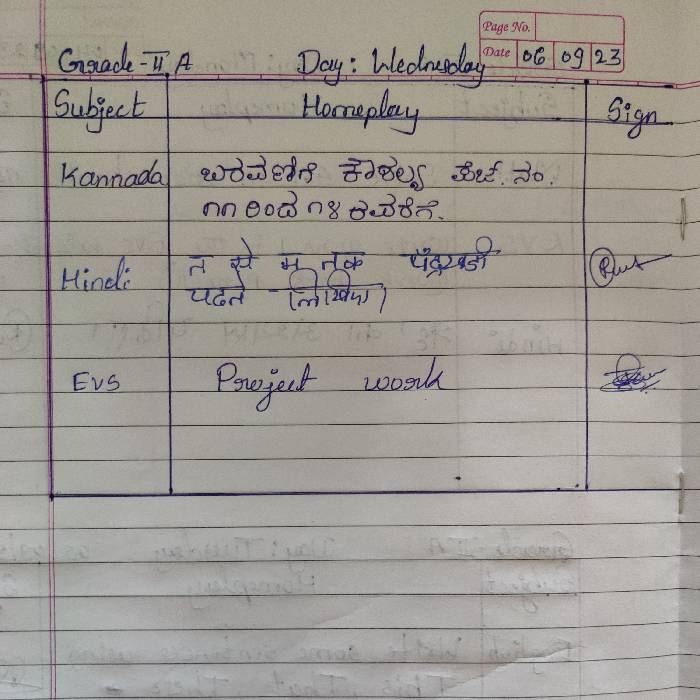 Page No.
Date 06 09 23
Grade-II A Day: Wednesday
Subject Homeplay Sign
Kannada ಬರವಣಿಗೆ ಕೌಶಲ್ಯ ಪೇಜ್. ನಂ.
೧೧ ರಿಂದ ೧೪ ರವರೆಗೆ.
Hindi त से म तक
(लिखिए)
EVS Project work